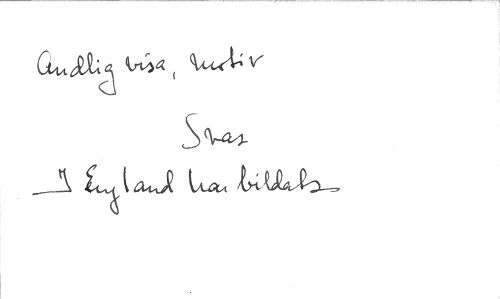 Andlig visa, motiv
Svar
I England har bildats